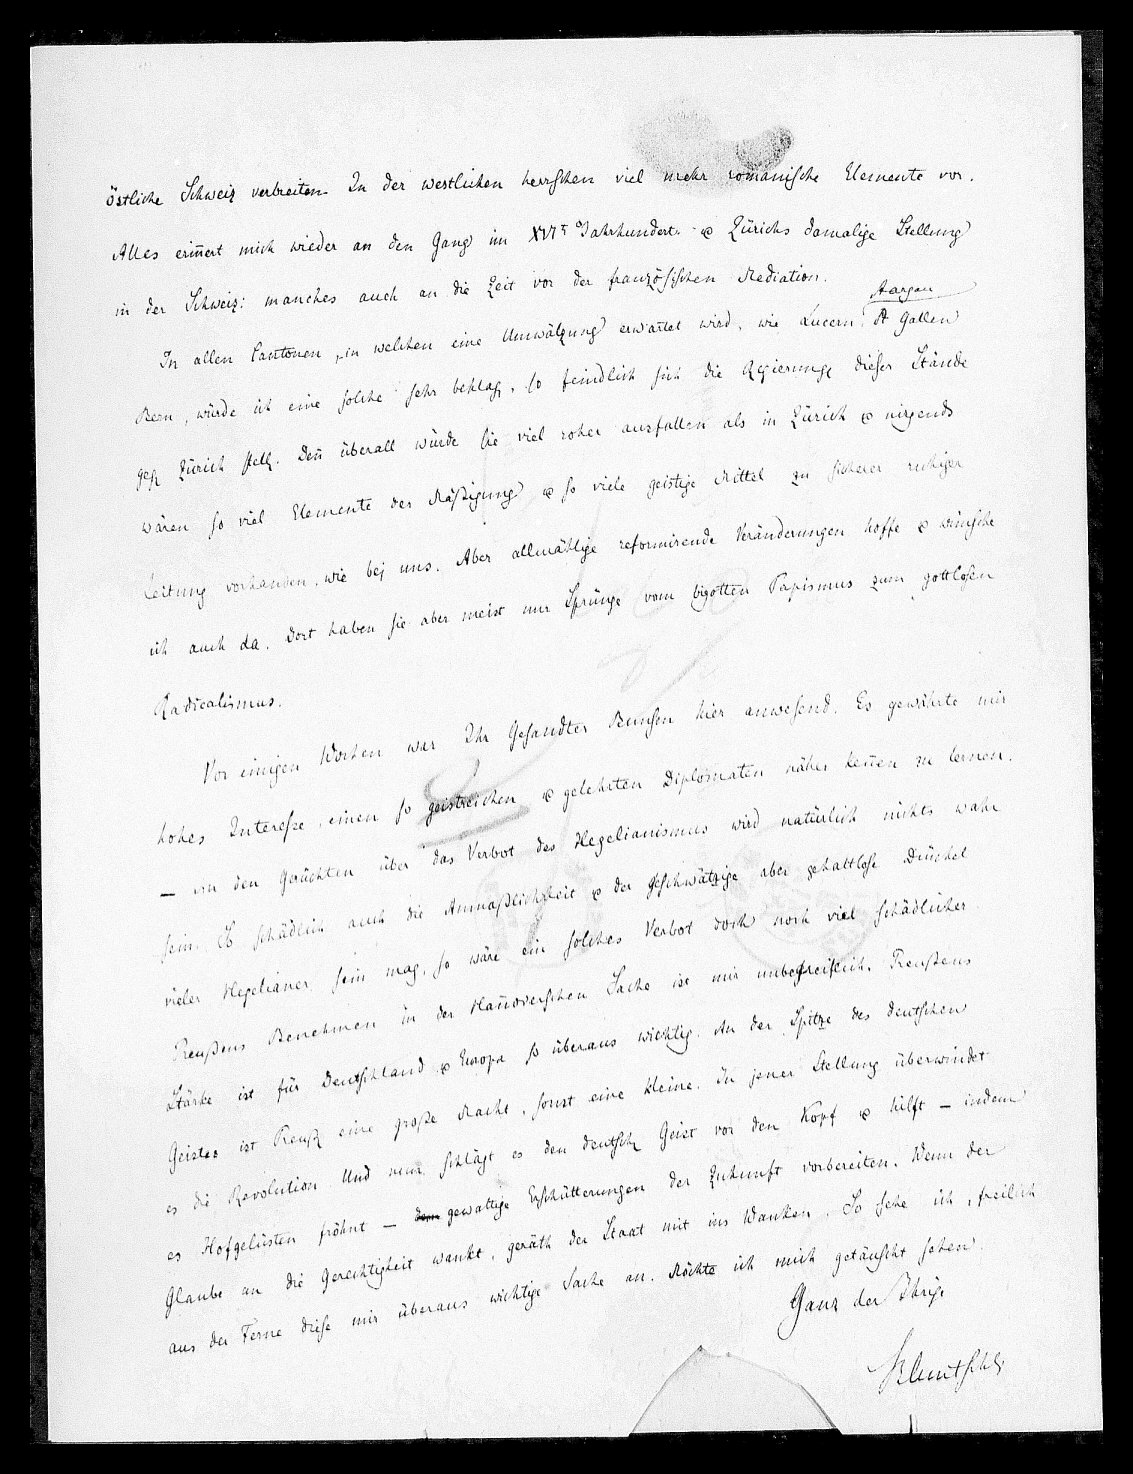 östliche Schweiz verbreiten. In der westlichen herrschen viel mehr romanische Elemente vor.
Alles erin̄ert mich wieder an den Gang im XVIt Jahrhundert & Zürichs damalige Stellung
in der Schweiz: manches auch an die Zeit vor der französischen Mediation.
Aargau
In allen Cantonen, in welchen eine Umwälzung erwartet wird, wie Lucern, St Gallen
Bern, würde ich eine solche sehr beklag, so feindlich sich die Regierung dieser Stände
geg Zürich stell. Den̄ überall würde sie viel roher ausfallen als in Zürich & nirgends
wären so viel Elemente der Mäßigung & so viele geistige Mittel zu sicherer ruhiger
Leitung vorhanden, wie bej uns. Aber allmählige reformirende Veränderungen hoffe & wünsche
ich auch da. Dort haben sie aber meist nur Sprünge vom bigotten Papismus zum gottlosen
Radicalismus.
Vor einigen Wochen war Ihr Gesandter Bunsen hier anwesend. Es gewährte mir
hohes Interesse, einen so geistreichen & gelehrten Diplomaten näher ken̄en zu lernen.
– an den Gerüchten über das Verbot des Hegelianismus wird natürlich nichts wahr
sein. So schädlich auch die Anmaßlichkeit & der geschwätzige aber gehaltlose Dünkel
vieler Hegelianer sein mag, so wäre ein solches Verbot doch noch viel schädlicher.
Preußens Benehmen in der Han̄överschen Sache ist mir unbegreiflich. Preußens
Stärke ist für Deutschland & Europa so überaus wichtig. An der Spitze des deutschen
Geistes ist Preuß eine große Macht, sonst eine kleine. In jener Stellung überwindet
es die Revolution. Und nun schlägt es den deutsch Geist vor den Kopf & hilft – indem
es Hofgelüsten fröhnt – gewaltige Erschütterungen der Zukunft vorbereiten. Wenn der
Glaube an die Gerechtigkeit wankt, geräth der Staat mit ins Wanken. So sehe ich, freilich
aus der Ferne diese mir überaus wichtige Sache an. Möchte ich mich getäuscht sehen.
Ganz der Ihrige
Bluntschli